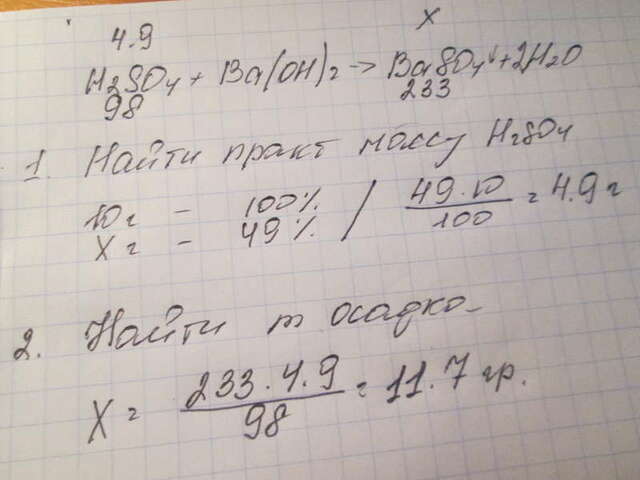 4.9 X
H2SO4 + Ba(OH)2 → BaSO4↓ + 2H2O
98 233
1. Найти практ массу H2SO4
10 г - 100% / 49·10/100 = 4.9 г
X г - 49%
2. Найти m осадка
X = 233·4.9/98 = 11.7 гр.